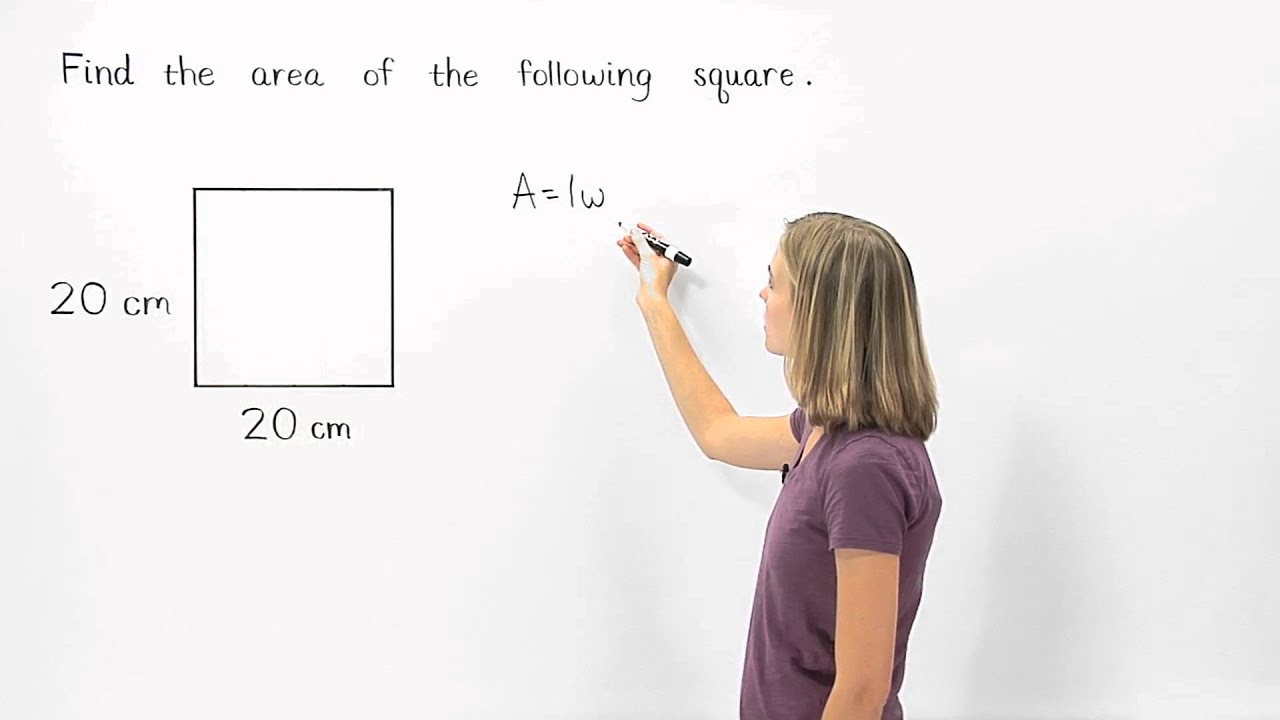 Find the area of the following square.
A=lw
20 cm
20 cm